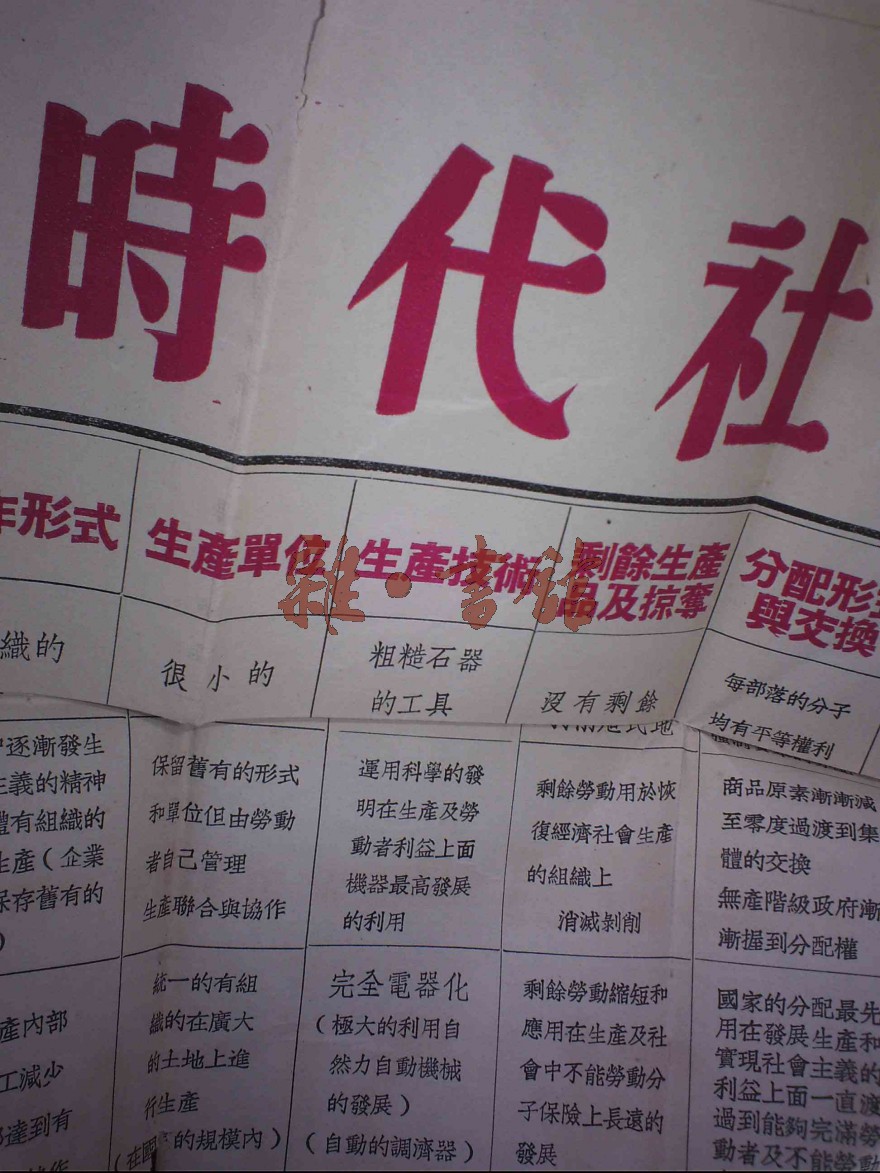 時代社
作形式
生產單位
生產技術
剩餘生產
品及掠奪
分配形
與交換
織的
很小的
粗糙石器
的工具
沒有剩餘
每部落的分子
均有平等權利
中逐漸發生
主義的精神
體有組織的
生產（企業
保存舊有的
）
保留舊有的形式
和單位但由勞動
者自己管理
生產聯合與協作
運用科學的發
明在生產及勞
動者利益上面
機器最高發展
的利用
剩餘勞動用於恢
復經濟社會生產
的組織上
消滅剝削
商品原素漸漸減
至零度過渡到集
體的交換
無產階級政府漸
漸握到分配權
產內部
工減少
達到有
統一的有組
織的在廣大
的土地上進
行生產
（在國 的規模內）
完全電器化
（極大的利用自
然力自動機械
的發展）
（自動的調濟器）
剩餘勞動縮短和
應用在生產及社
會中不能勞動分
子保險上長遠的
發展
國家的分配最先
用在發展生產和
實現社會主義的
利益上面一直渡
過到能夠完滿勞
動者及不能勞動
雜·書館